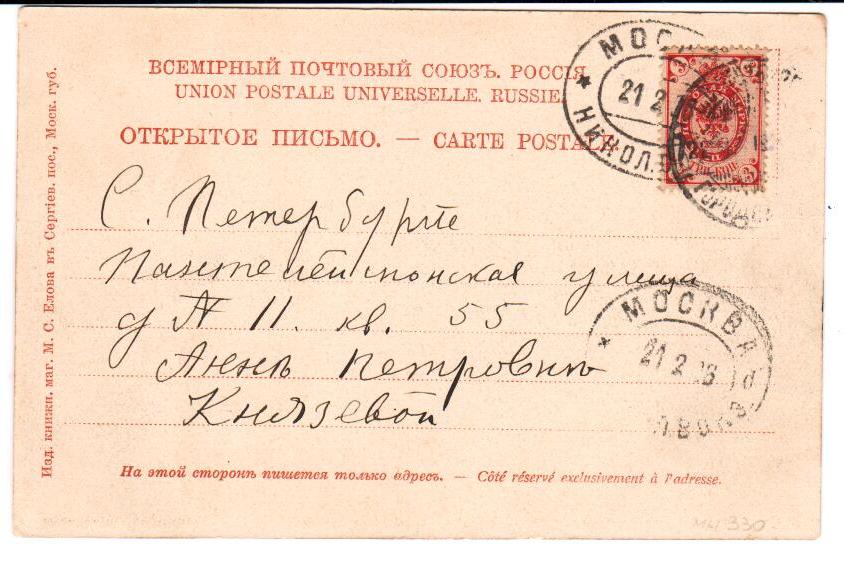 ВСЕМІРНЫЙ ПОЧТОВЫЙ СОЮЗЪ. РОССІЯ
UNION POSTALE UNIVERSELLE. RUSSIE.
ОТКРЫТОЕ ПИСЬМО. — CARTE POSTALE.
С. Петербургъ
Пантелеймонская улица
д № 11. кв. 55
Аннѣ Петровнѣ
Князевой
На этой сторонѣ пишется только адресъ. — Côté réservé exclusivement à l'adresse.
Изд. книжн. маг. М. С. Елова въ Сергіев. пос., Моск. губ.
МОСК
21 2
НИКОЛ. В
3
3
МОСКВА
21 2
330